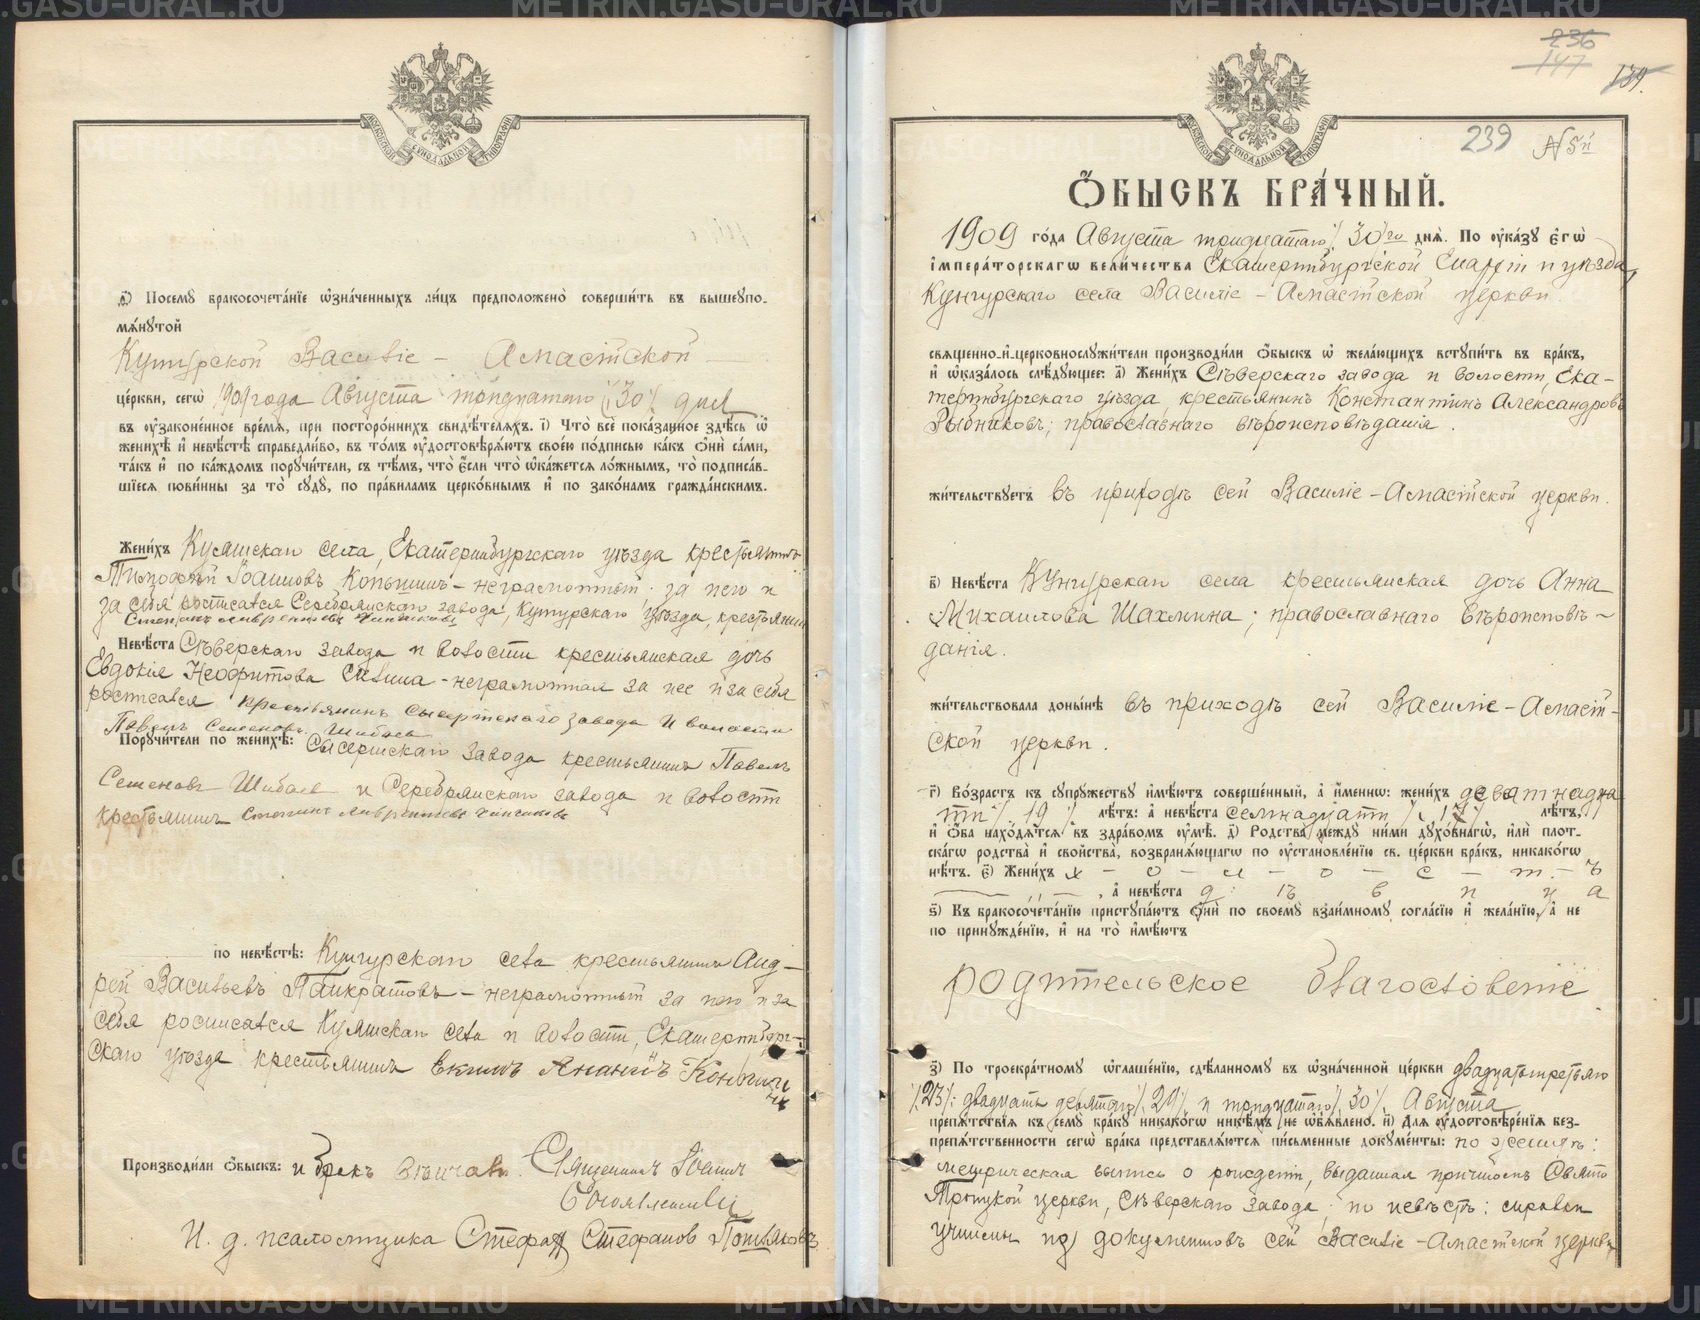 а҃і) Посему бракосочетанїе ѡзначенныхъ лицъ предположено совершить въ вышеупо-
мянутой
Кунгурской Василіе - Амасійской
церкви, сегѡ 1909 года Августа тридцатаго /:30/: дня
въ оузаконенное время, при постороннихъ свидѣтеляхъ. і) Что все показанное здѣсь ѡ
женихѣ и невѣстѣ справедливо, въ томъ оудостовѣряютъ своею подписью какъ они сами,
такъ и по каждомъ поручители, съ тѣмъ, что если что ѡкажется ложнымъ, то подписав-
шіеся повинны за то суду, по правиламъ церковнымъ и по законамъ гражданскимъ.
Женихъ Куяшскаго села, Екатеринбургскаго уѣзда крестьянинъ
Тимофей Іоанновъ - неграмотный. за него и
за себя росписался Серебрянскаго завода, Кунгурскаго уѣзда, крестьянинъ
Невѣста Сѣверскаго завода и волости крестьянская дочь
Евдокія Неофитова - неграмотная за нее и за себя
росписался крестьянинъ Сысертскаго завода и волости
Павелъ Семеновъ Шибаевъ
Поручители по женихѣ: Сысертскаго завода крестьянинъ Павелъ
Семеновъ Шибаев и Серебрянскаго завода и волости
крестьянинъ
по невѣстѣ: Кунгурскаго села крестьянинъ Анд-
рей Васильевъ Панкратовъ - неграмотный за него и за
себя росписался Куяшскаго села и волости, Екатеринбург-
скаго уѣзда крестьянинъ
Производили ѡбыскъ: и бракъ вѣнчали: Священникъ Іоаннъ
Богоявленскій
И. д. псаломщика Стефан Стефанов
236
147
139.
239 N 5й
ѠБЫСКЪ БРАЧНЫЙ.
1909 года Августа тридцатаго /: 30го дня. По оуказу Егѡ
Императорскагѡ величества Екатеринбургской Епархіи и уѣзда,
Кунгурскаго села Василіе - Амасійской церкви
священно-и-церковнослужители производили ѡбыскъ ѡ желающихъ вступить въ бракъ,
и ѡказалось слѣдующее: а҃) Женихъ Сѣверскаго завода и волости, Ека-
теринбургскаго уѣзда крестьянинъ Константинъ Александровъ
Рыбниковъ; православнаго вѣроисповѣданія.
жительствуетъ въ приходѣ сей Василіе - Амасійской церкви.
в҃) Невѣста Кунгурскаго села крестьянская дочь Анна
Михаилова Шахмина; православнаго вѣроисповѣ-
данія.
жительствовала донынѣ въ приходѣ сей Василіе - Амасій-
ской церкви.
г҃) Возрастъ къ супружеству имѣютъ совершенный, а именнѡ: женихъ девятнадца-
ти /: 19 /: лѣтъ: а невѣста семнадцати /: 17 /: лѣтъ,
и ѡба находятся въ здравомъ оумѣ. д҃) Родства между ними духовнагѡ, или плот-
скагѡ родства и свойства, возбраняющагѡ по оустановленїю св. церкви бракъ, никакогѡ
нѣтъ. е҃) Женихъ х - о - л - о - с - т - ъ
, а невѣста д ѣ в и ц а
ѕ҃) Къ бракосочетанїю приступаютъ они по своему взаимному согласїю и желанїю, а не
по принужденїю, и на то имѣютъ
родительское благословеніе
з҃) По троекратному ѡглашенїю, сдѣланному въ ѡзначенной церкви двадцатьтретьяго
/:23/: двадцать девятаго /: 29 /: и тридцатаго /: 30 /: Августа
препятствїя къ сему браку никакогѡ никѣмъ не ѡбявлено. и҃) Для оудостовѣренїя без-
препятственности сегѡ брака представляются письменные документы: по женихѣ:
метрическая выпись о рожденіи, выданная причтомъ Свято
Троицкой церкви, Сѣверскаго завода; по невѣстѣ: справки
учинены из документовъ сей Василіе - Амасійской церкви